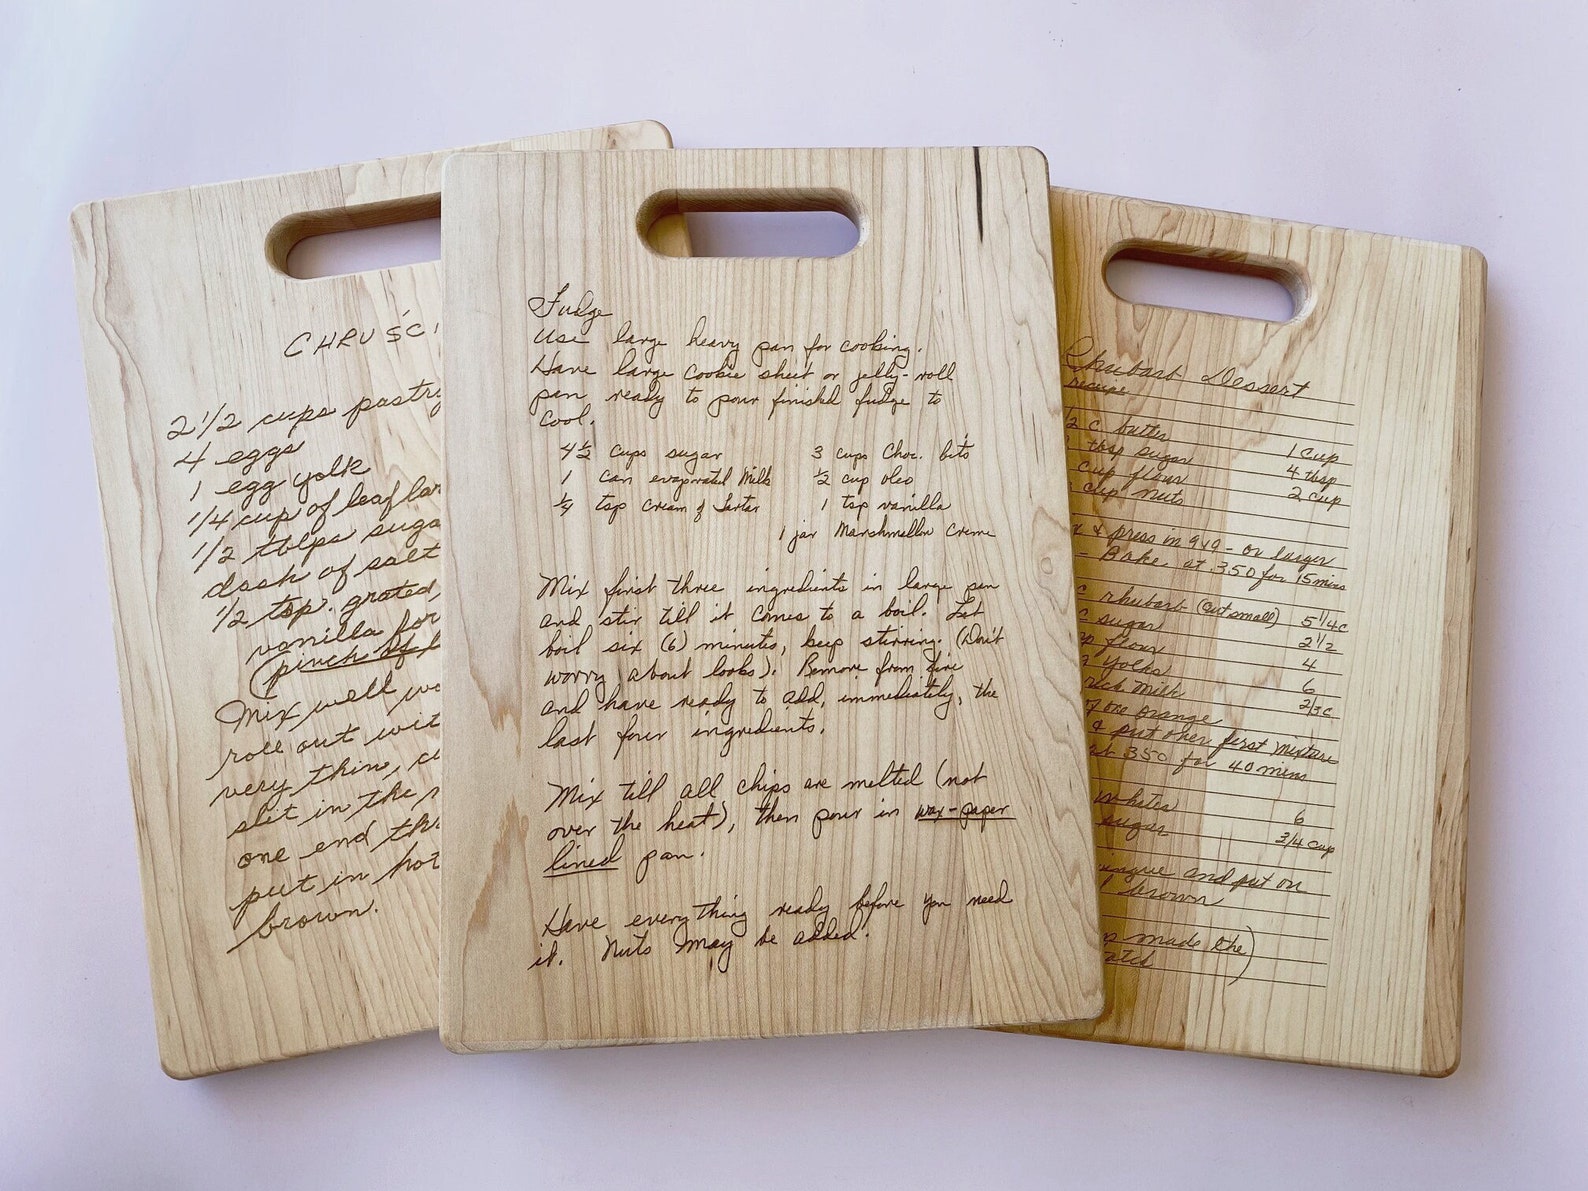 CHRUŚC
2 1/2 cups pastry
4 eggs
1 egg yolk
1/4 cup of leaf lar
1/2 tblps suga
dash of salt
1/2 tsp. grated,
vanilla for
(pinch of
Mix well
roll out wit
very thin, c
slit in the
one end th
put in hot
brown.
Fudge
Use large heavy pan for cooking.
Have large cookie sheet or jelly-roll
pan ready to pour finished fudge to
cool.
4½ cups sugar 3 cups Choc. bits
1 can evaporated Milk ½ cup oleo
¼ tsp Cream of Tartar 1 tsp vanilla
1 jar Marshmellow Creme
Mix first three ingredients in large pan
and stir till it comes to a boil. Let
boil six (6) minutes, keep stirring. (Don't
worry about looks). Remove from fire
and have ready to add, immediately, the
last four ingredients.
Mix till all chips are melted (not
over the heat), then pour in wax-paper
lined pan.
Have everything ready before you need
it. Nuts may be added.
Rhubarb Dessert
recipe
2 c butter 1 cup
tbsp sugar 4 tbsp
cup flour 2 cup
cup nuts
& press in 9x9 - or larger
- Bake at 350 for 15 mins
c rhubarb (cut small) 5 1/4 c
c sugar 2 1/2
flour 4
yolks 6
milk 2/3 c
of one orange
& put over first mixture
at 350 for 40 mins
whites 6
sugar 3/4 cup
ingue and put on
brown
made the)
atch